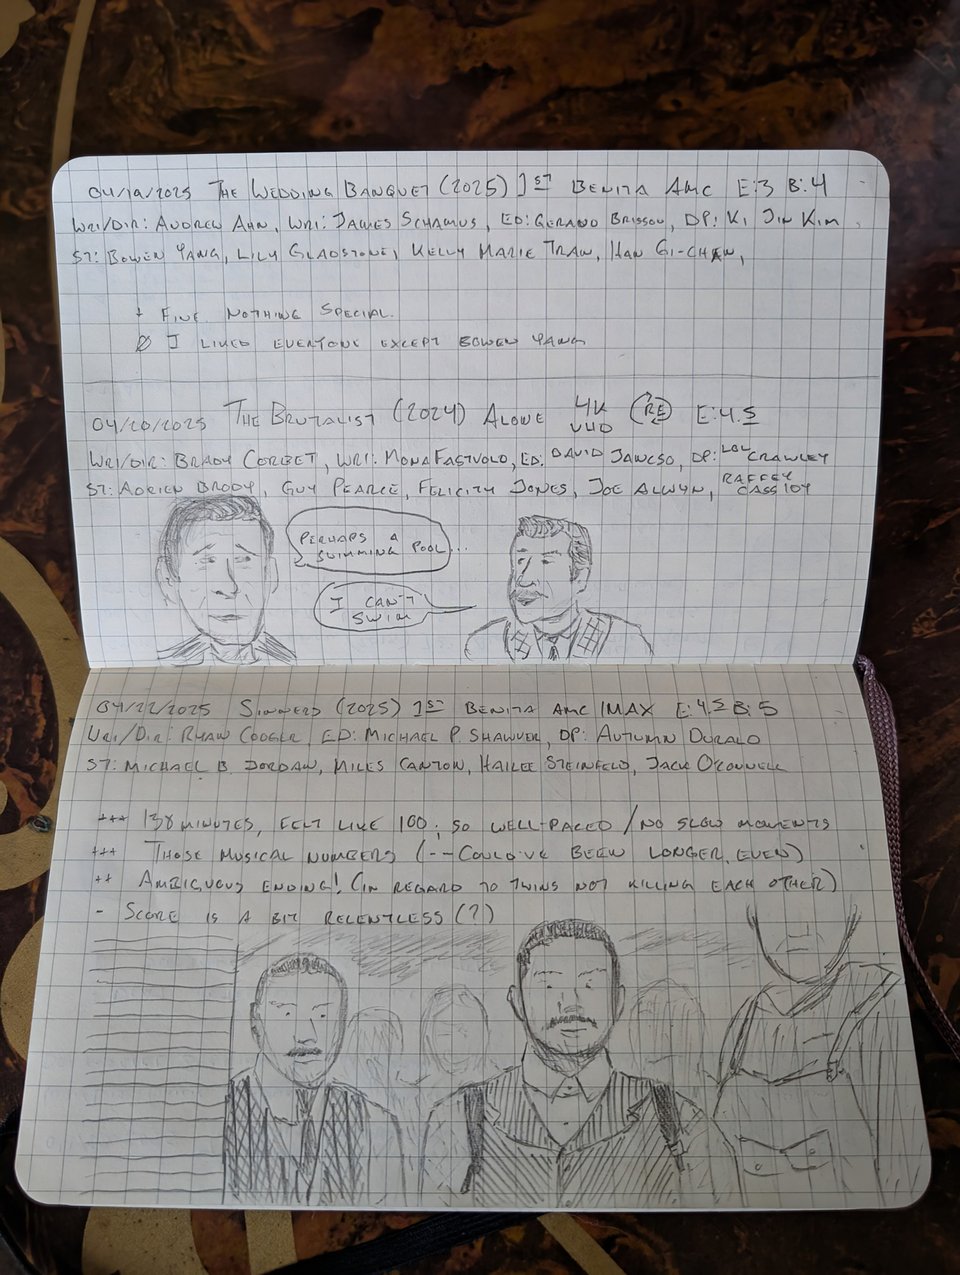 04/19/2025 THE WEDDING BANQUET (2025) 1ST BENITA AMC E:3 B:4
WRI/DIR: ANDREW AHN, WRI: JAMES SCHAMUS, ED: GERARD BRISSON, DP: KI JIN KIM
ST: BOWEN YANG, LILY GLADSTONE, KELLY MARIE TRAN, HAN GI-CHAN,
+ FINE NOTHING SPECIAL.
Ø I LIKED EVERYONE EXCEPT BOWEN YANG
04/20/2025 THE BRUTALIST (2024) ALONE 4K UHD (RE) E:4.5
WRI/DIR: BRADY CORBET, WRI: MONA FASTVOLD, ED: DAVID JANCSO, DP: LOL CRAWLEY
ST: ADRIEN BRODY, GUY PEARCE, FELICITY JONES, JOE ALWYN, RAFFEY CASSIDY
PERHAPS A
SWIMMING POOL...
I CAN'T
SWIM
04/22/2025 SINNERS (2025) 1ST BENITA AMC IMAX E:4.5 B:5
WRI/DIR: RYAN COOGLER, ED: MICHAEL P. SHAWVER, DP: AUTUMN DURALD
ST: MICHAEL B. JORDAN, MILES CANTON, HAILEE STEINFELD, JACK O'CONNELL
+++ 138 MINUTES, FELT LIKE 100; SO WELL-PACED / NO SLOW MOMENTS
+++ THOSE MUSICAL NUMBERS (--COULD'VE BEEN LONGER, EVEN)
++ AMBIGUOUS ENDING! (IN REGARD TO TWINS NOT KILLING EACH OTHER)
- SCORE IS A BIT RELENTLESS (?)